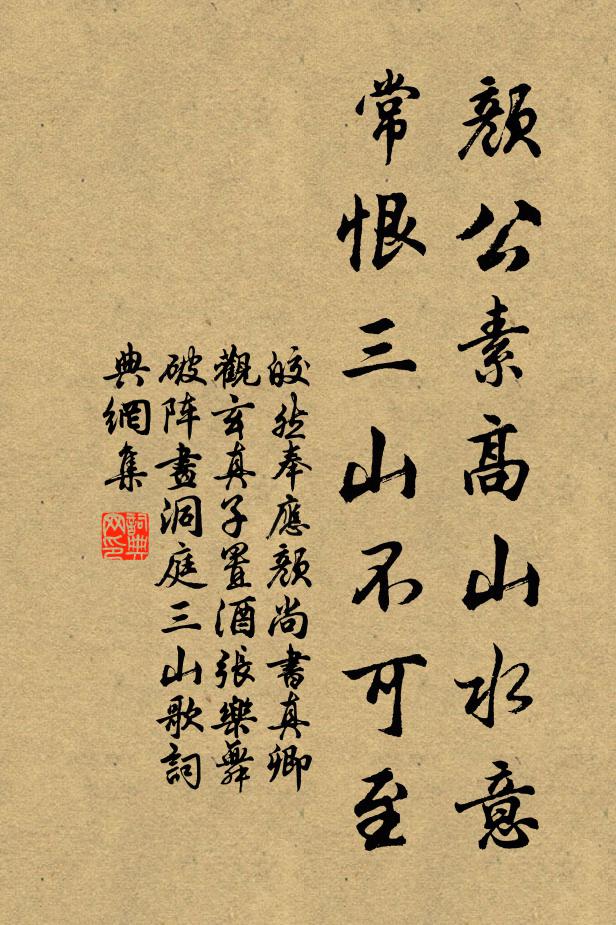 顏公素高山水意
常恨三山不可至
皎然奉應顏尚書真卿
觀玄真子置酒張樂舞
破阵畫洞庭三山歌詞
典網集
詞典
网印